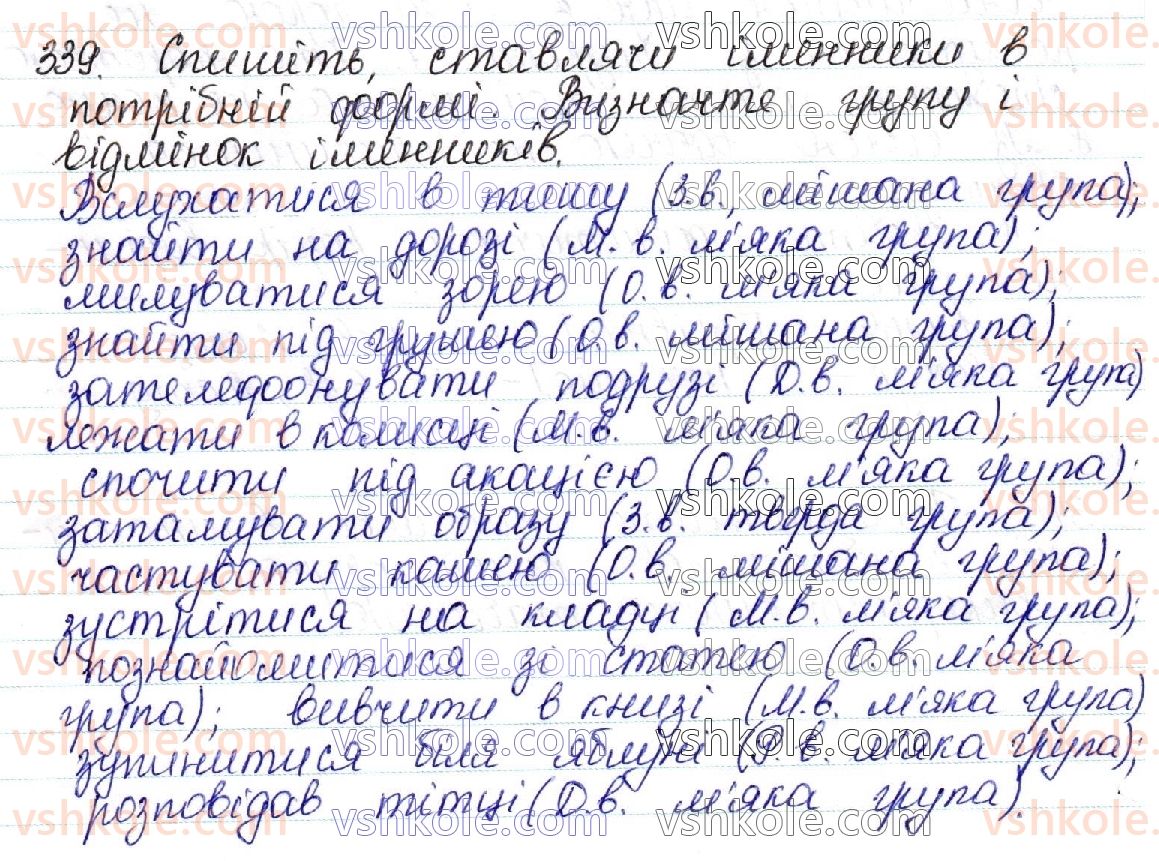 339. Спишіть, ставлячи іменники в
потрібній формі. Визначте групу і
відмінок іменників.
Вслухатися в тишу (З.в., мішана група);
знайти на дорозі (М.в. м'яка група);
милуватися зорею (О.в. м'яка група);
знайти під грушею (О.в. мішана група);
зателефонувати подрузі (Д.в. м'яка група)
лежати в колисці (М.в. м'яка група);
спочити під акацією (О.в. м'яка група);
затамувати образу (З.в. тверда група);
частувати кашею (О.в. мішана група);
зустрітися на кладці (М.в. м'яка група);
познайомитися зі статею (О.в. м'яка
група); вивчити в книзі (М.в. м'яка група)
зупинитися біля яблуні (Р.в. м'яка група);
розповідав тітці (Д.в. м'яка група).
vshkole.com